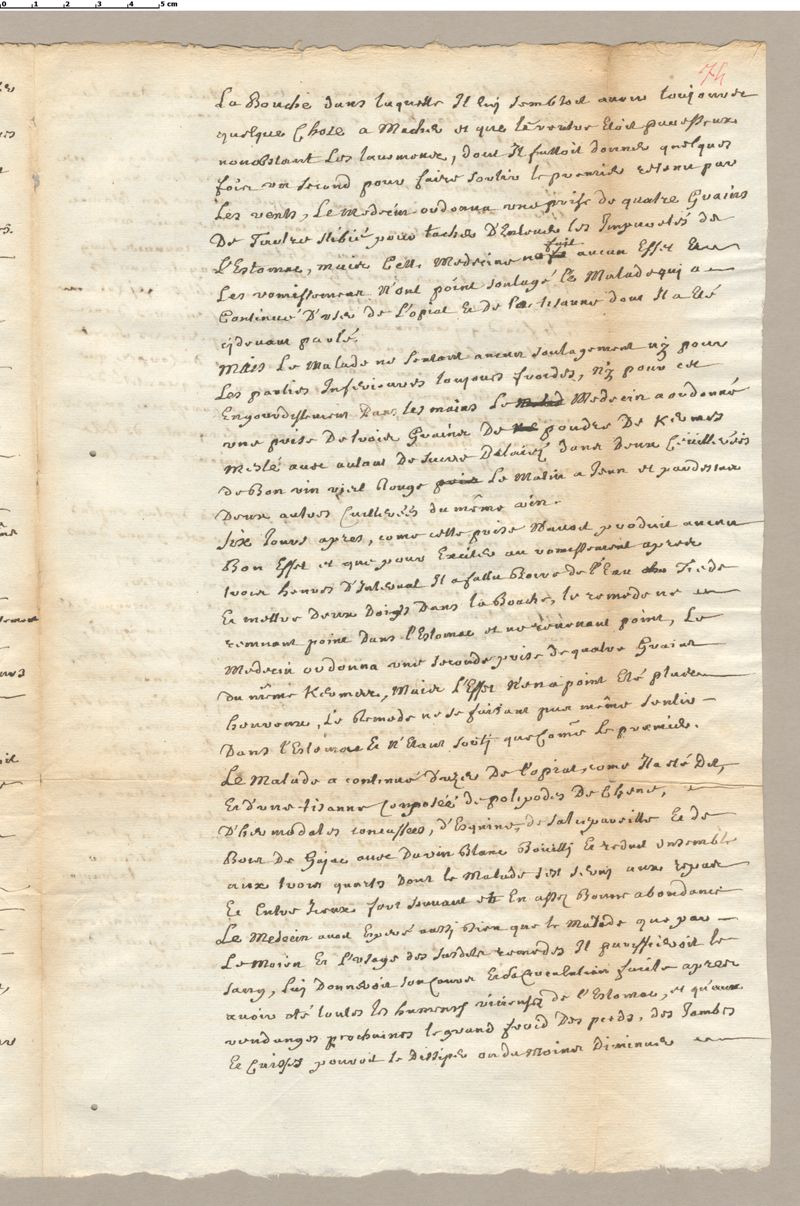 0 1 2 3 4 5 cm
74
La Bouche dans laquelle Il luy sembloit avoir toujours
quelque Chose a Macher et que le ventre Etoit paresseux
nonobstant Les lavemens, dont Il falloit donner quelques
fois un second pour faire sortir le premier retenu par
Les vents, Le Medecin ordonna une prise de quatre Grains
De Tartre stibié pour tacher D'Enlever les Impuretés de
L'Estomac, mais Cette Medecine n'a fait aucun Effet Et
Les vomissemens N'ont point soulagé le Malade qui a
Continué D'user de L'opiat Et de la tisanne dont Il a Eté
cy devant parlé.
Mais Le Malade ne sentant aucun soulagement n'y pour
Les parties Inferieures toujours froides, n'y pour cet
Engourdissement Dans les mains Le Medecin a ordonné
une prise De trois Grains De poudre De Kermes
Meslé avec autant De sucre Delaiez dans Deux Cüillerées
de Bon vin vieil Rouge Le Matin a Jeun et pardessus
Deux autres Cuillerées du même vin.
Six Jours apres, come cette prise N'avoit produit aucun
Bon Effet et que pour Exciter au vomissement apres
trois heures D'Interval Il a fallu Boire de l'Eau Tiede
Et mettre Deux Doigts Dans la Bouche, le remede ne
remuant point Dans l'Estomac et ne revenant point, Le
Medecin ordonna une seconde prise de quatre Grains
du même Kermes, Mais L'Effet N'en a point Eté plus
heureux, Le Remede ne se faisant pas même sentir
Dans l'Estomac Et N'étant sorty que Come Le premier.
Le Malade a continué D'uzer De l'opiat, come Il a eté Dit,
Et D'une tisanne Composée de polipodes De Chene,
D'hermodates concassées, d'Esquine, de salsepareille Et de
Bois De Gajac avec Du vin Blanc Boüilli Et reduit Ensemble
aux trois quarts Dont le Malade s'est servy aux repas
Et Entre Jceux fort souvent et En assez Bonne abondance
Le Medecin avoit Esperé aussi bien que le Malade que par
Le Moien Et l'usage des susdits remedes Il purifieroit le
sang, Lui Donneroit son cours Et sa Circulation facile apres
avoir oté toutes les humeurs vicieuses de l'Estomac, et qu'aux
vendanges prochaines le grand froid Des pieds, des Jambes
Et Cuisses pouvoit se Dissiper ou du Moins Diminuer